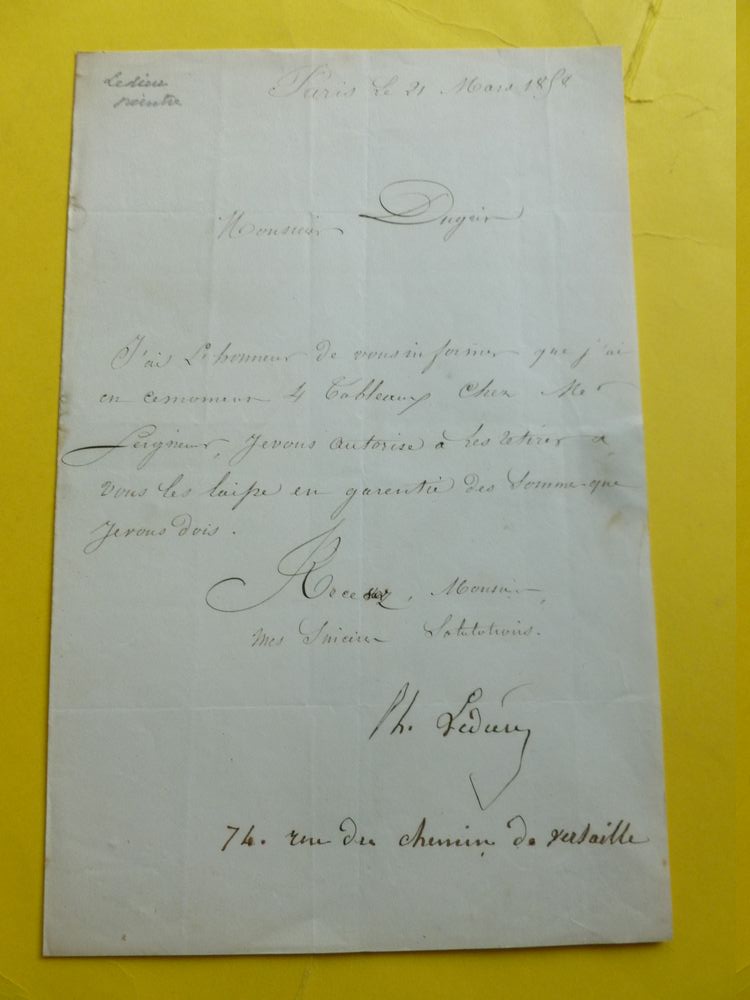 Ledieu
peintre
Paris Le 21 Mars 185
Monsieur
J'ais L'honneur de vous informer que j'ai
en cemoment 4 Tableaux Chez Mr
Seigneur, Jevous autorise a Les retirer &
Vous les laisse en garentie des Somme que
Jevous dois.
Recevez, Monsieur,
Mes Sincere Salutations.
Ph. Ledieu
74. rue du chemin de versaille